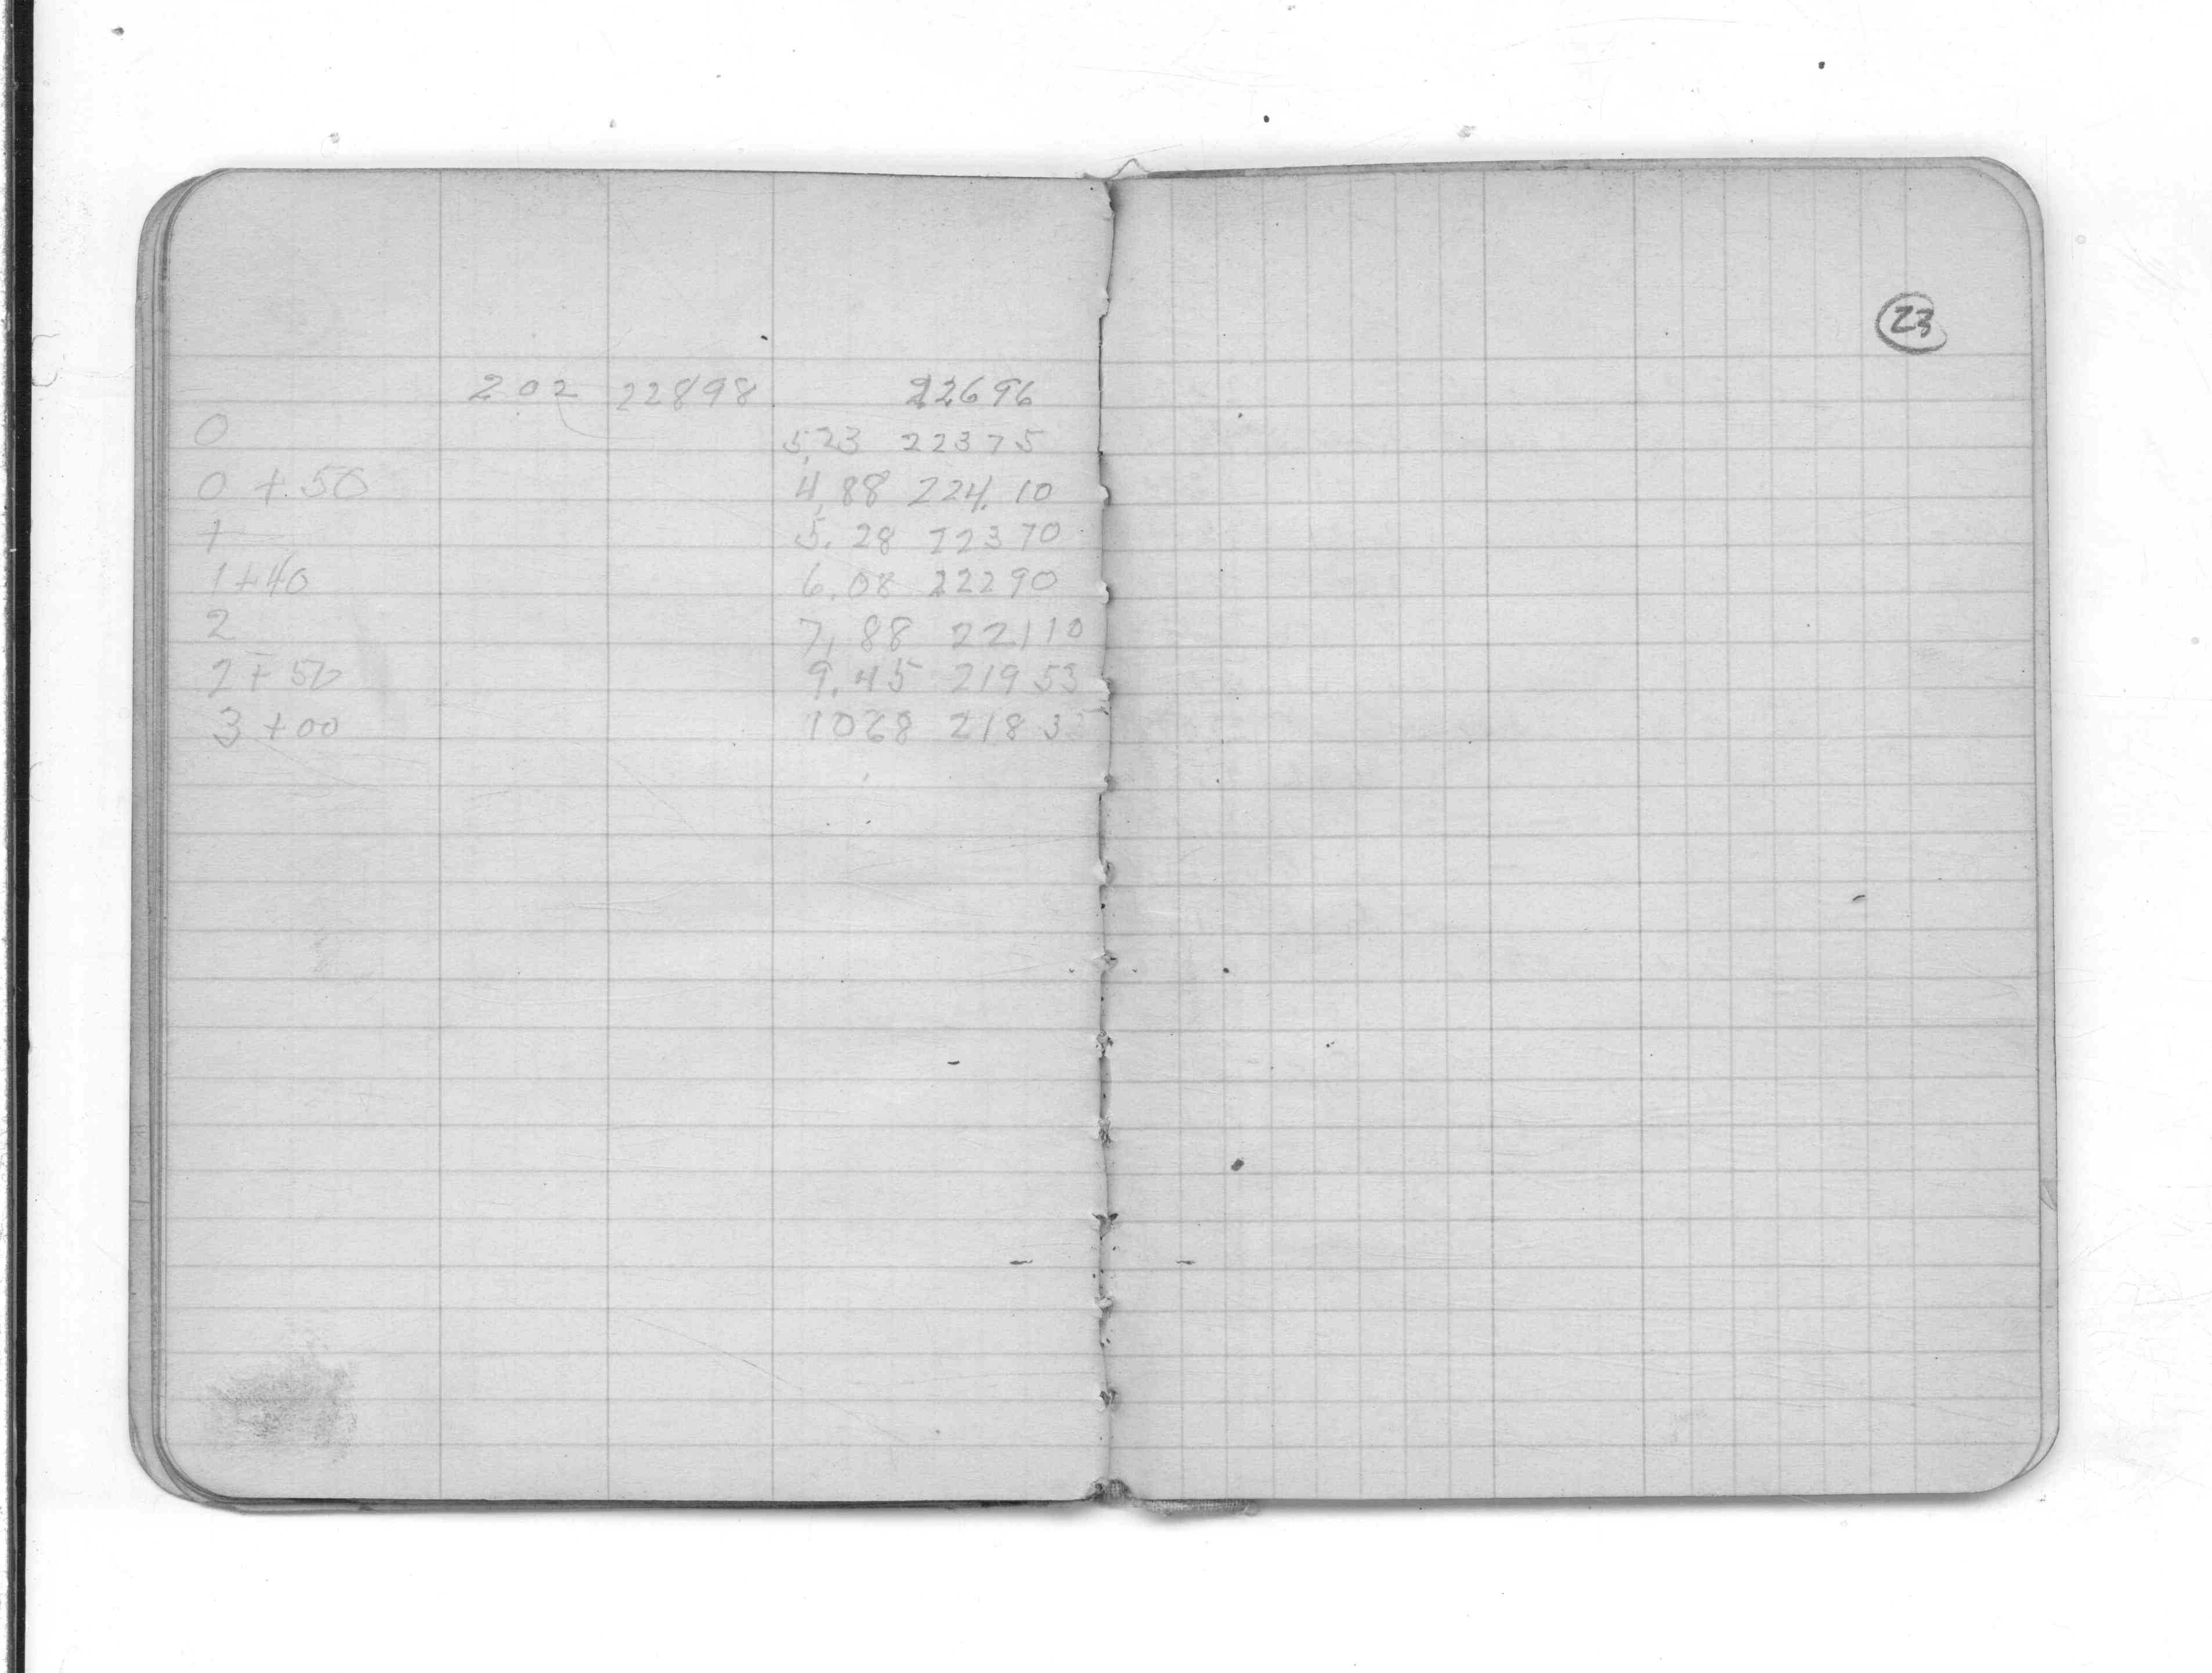 23
202 22898 22696
0 5,23 22375
0 + 50 4,88 224.10
1 5.28 22370
1+40 6.08 22290
2 7,88 22110
2+50 9.45 21953
3+00 1068 2183